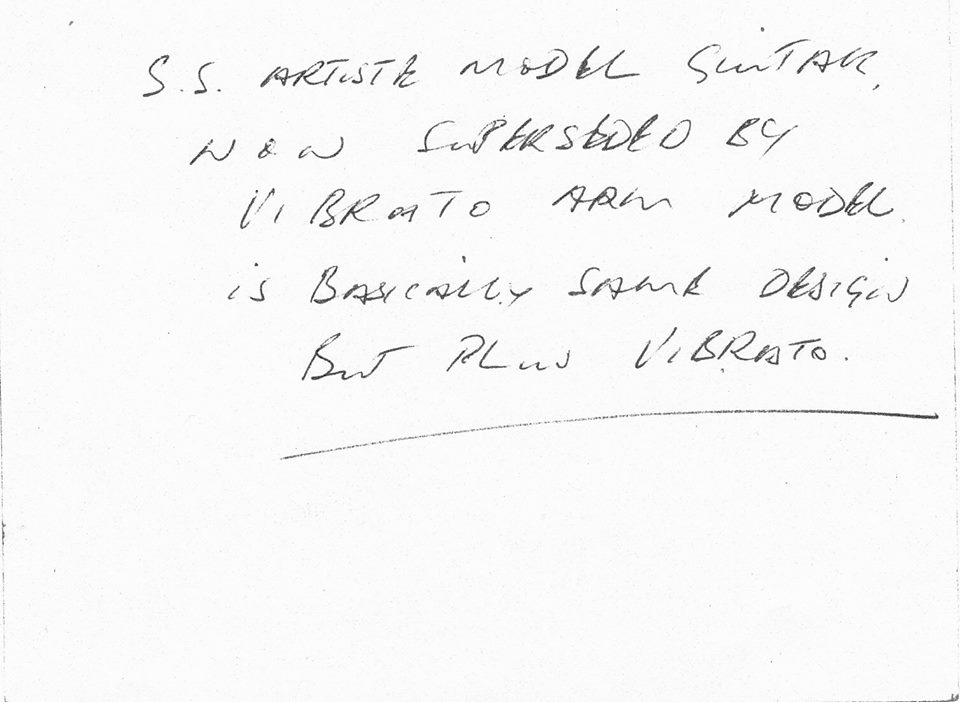 S.S. ARTISTE MODEL GUITAR,
NOW SUPERSEDED BY
VIBRATO ARM MODEL.
is BASICALLY SAME DESIGN
BUT PLUS VIBRATO.